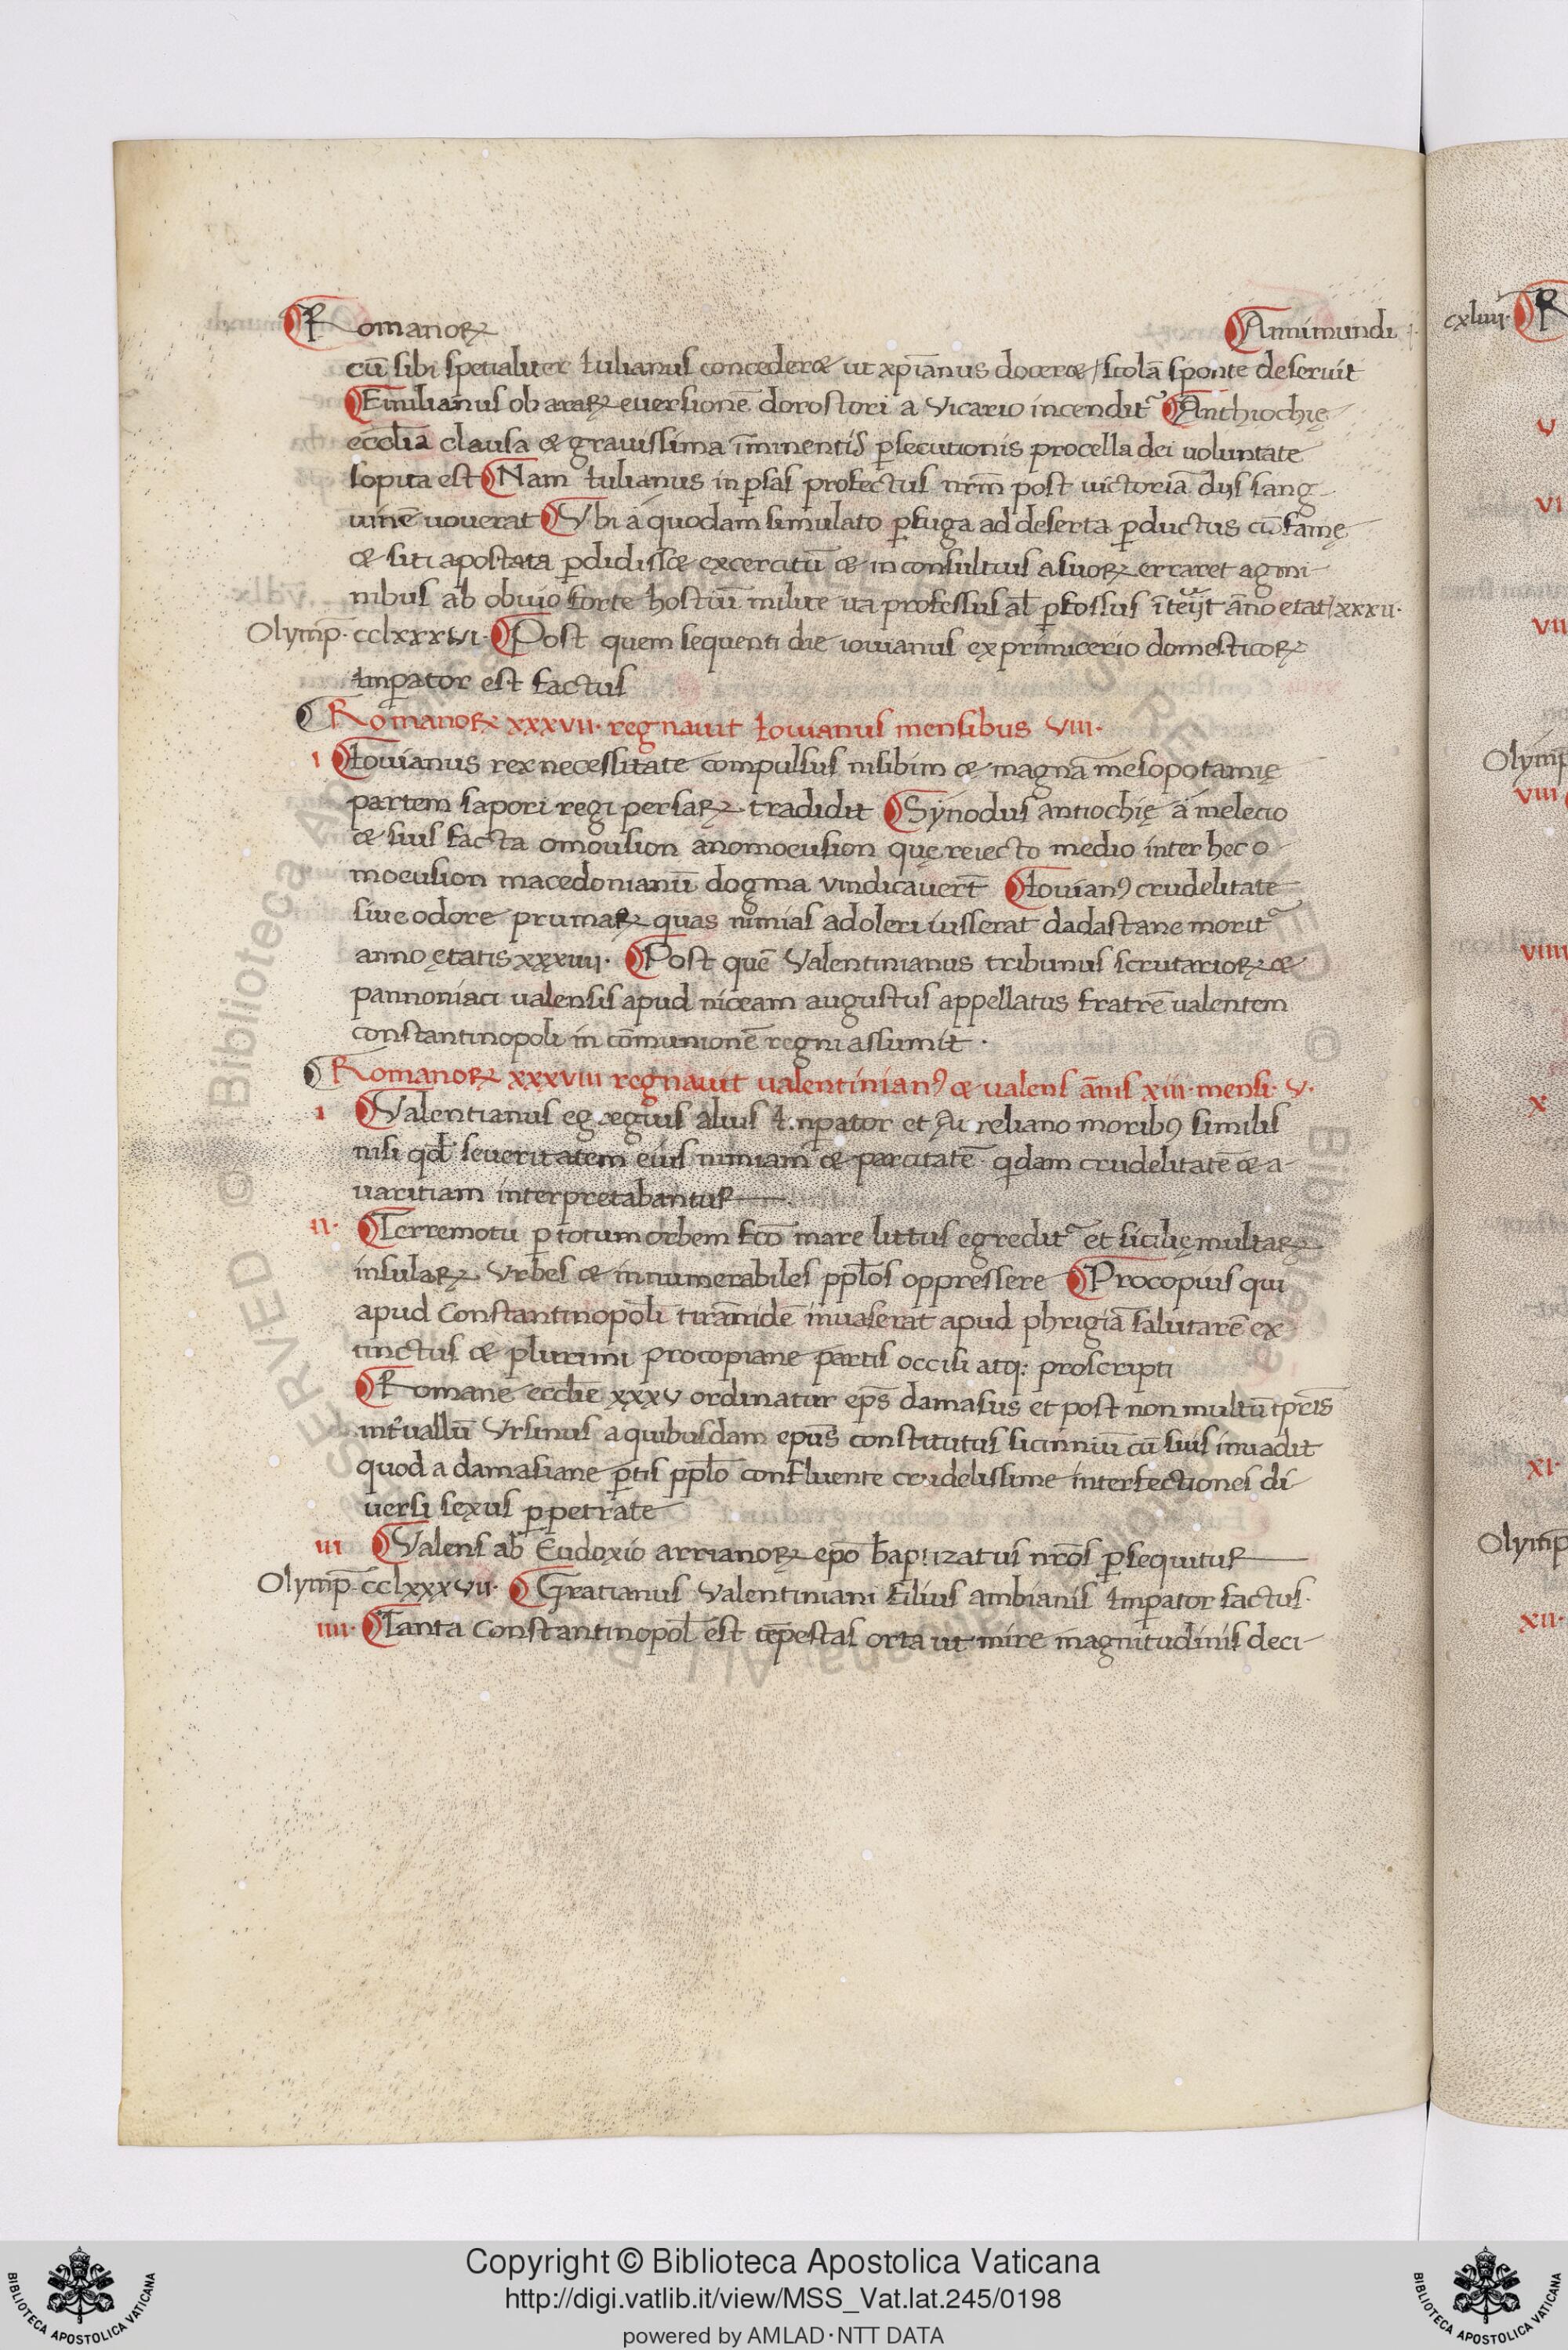 Romanorꝝ Anni mundi
cū sibi specialiter Iulianus concederet ut xp̄ianus doceret / scolā sponte deseruit
Emilianus ob ararꝝ euersionē dorostori a Vicario incendit᷑ Anthiochię
eccl̄ia clausa et grauissima īminentis ꝑsecutionis procella dei uoluntate
sopita est Nam Iulianus in ꝑsas profectus nr̄m post uictoriā dijs sang
uinē uouerat Vbi a quodam simulato ꝑfuga ad deserta ꝑductus cū famę
et siti apostata ꝑdidisset excercitū et in consultius a suorꝝ erraret agmi
nibus ab obuio forte hostiū milite ꝑfossus īterijt āno etat xxxii·
Olymp̄· cclxxxvi· Post quem sequenti die iouianus ex primicerio domesticorꝝ
Imꝑator est factus
Romanorꝝ xxxvii· regnauit Iouianus mensibus viii·
i Iouianus rex necessitate compulsus nisibim et magnā mesopotamię
partem sapori regi persarꝝ tradidit Synodus antiochię a melecio
et suis facta omousion anomoeusion quę reiecto medio inter hec o
moeusion macedonianū dogma vindicauert̄ Iouianꝯ crudelitate
siue odore prunarꝝ quas nimias adoleri iusserat dadastane morit᷑
anno ętatis xxxiiij· Post quē Valentinianus tribunus scrutariorꝝ et
pannoniaci ualensis apud niceam augustus appellatus fratrē ualentem
constantinopoli in cōmunionē regni assumit·
Romanorꝝ xxxviii regnauit ualentinianꝯ et ualens ānis xiii· mensi· v·
i Valentianus egregius alius Imꝑator et Aureliano moribꝯ similis
nisi qđ seueritatem eius nimiam et parcitatē qdam crudelitatē et a
uaritiam interpretabantur
ii· Terremotu ꝑ totum orbem fc̄o mare littus egredit᷑ et sicilię multarꝝ
insularꝝ Vrbes et innumerabiles ppl̄os oppressere Procopius qui
apud Constantinopoli tirānidē inuaserat apud phrigiā salutarē ex
tinctus et plurimi procopiane partis occisi atq; proscripti
Romane eccl̄ie xxxv ordinatur ep̄s damasus et post non multū tp̄ris
int᷑uallū Vrsinus a quibusdam epūs constitutus sicinniū cū suis inuadit
quod a damasiane ꝑtis ppl̄o confluente crudelissime interfectiones di
uersi sexus ꝑpetrate
iii Valens ab Eudoxio arrianorꝝ epō baptizatus nrōs ꝑsequitur
Olymp̄ cclxxxvii· Gratianus Valentiniani filius ambianis Imꝑator factus·
iiii· Tanta Constantinopol̄ est tēpestas orta ut mire magnitudinis deci
cxliiii·
v
vi
vii
Olymp
viii
viiii
x
xi·
Olymp
xii·
Copyright © Biblioteca Apostolica Vaticana
http://digi.vatlib.it/view/MSS_Vat.lat.245/0198
powered by AMLAD·NTT DATA
BIBLIOTECA APOSTOLICA VATICANA
BIBLIOTECA APOSTOLICA VATICANA